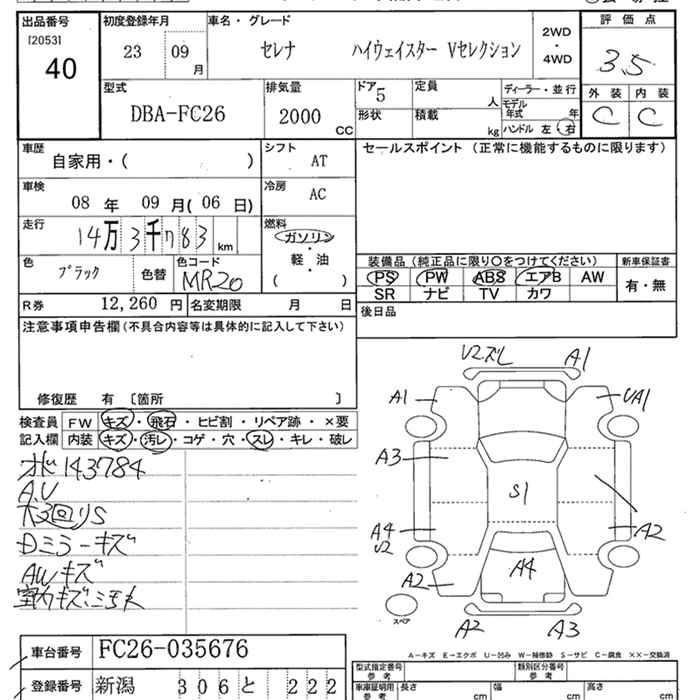 出品番号 初度登録年月 車名・グレード 2WD・4WD 評価点
[2053]
40
23 09 月 セレナ ハイウェイスター Vセレクション
3.5
外装 内装
C C
型式 排気量 ドア 定員 ディーラー・並行
DBA-FC26 2000 cc 5 人
モデル年式 年
形状 積載 kg ハンドル 左・右
車歴 シフト セールスポイント (正常に機能するものに限ります)
自家用・( ) AT
車検 冷房
08 年 09 月( 06 日) AC
走行 燃料
14万3千783 km ガソリン・軽・油
( )
色 色コード
ブラック 色替 MR20
装備品(純正品に限り○をつけてください) 新車保証書
PS PW ABS エアB AW 有・無
SR ナビ TV カワ
R券 12,260 円 名変期限 月 日
後日品
注意事項申告欄(不具合内容等は具体的に記入して下さい)
修復歴 有 〔箇所 〕
検査員 FW キズ・飛石・ヒビ割・リペア跡・×要
記入欄 内装 キズ・汚レ・コゲ・穴・スレ・キレ・破レ
143784
A.U
S
Dミラーキズ
AWキズ
室内キズ
U2ズレ A1
A1 UA1
A3
S1
A4 A2
U2
A2 A4
スペア
A2 A3
A-キズ E-エクボ U-凹み W-補修跡 S-サビ C-腐食 ××-交換済
車台番号 FC26-035676
登録番号 新潟 306 と 222
型式指定番号 参考 類別区分番号 参考
車庫証明用 参考 長さ cm 幅 cm 高さ cm